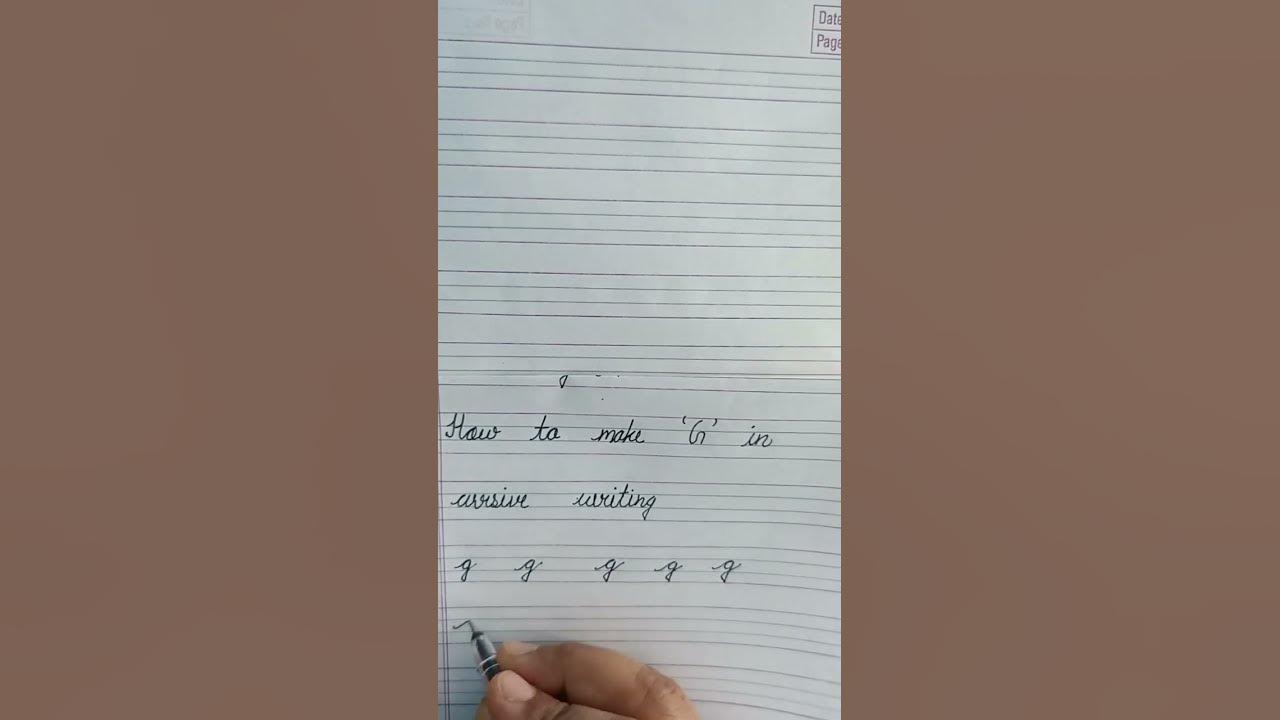 Date
Page
How to make 'G' in
cursive writing
g g g g g